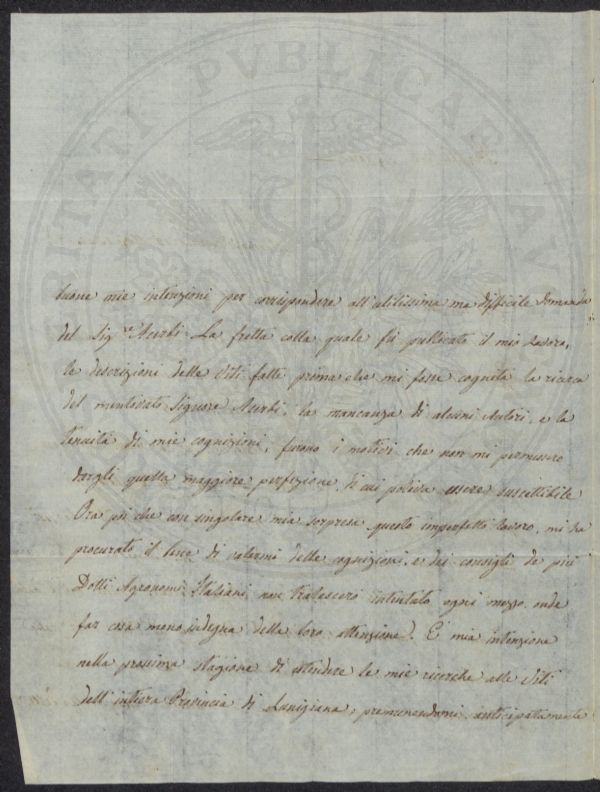 VERITATI PVBLICAE
buone mie intenzioni per corrispondere all'utilissima ma difficile domanda
del Sig.re Acerbi. La fretta colla quale fù publicato il mio lavoro,
le descrizioni delle Viti fatte prima che mi fosse cognita la ricerca
del mentovato Signore Acerbi, la mancanza di alcuni Autori, e la
tenuità di mie cognizioni, furono i motivi che non mi permisero
dargli quella maggiore perfezione di cui poteva essere suscettibile
Ora poi che con singolare mia sorpresa questo imperfetto lavoro, mi ha
procurato il bene di valermi delle cognizioni, e dei consigli de più
Dotti Agronomi Italiani, non tralascerò intentato ogni mezzo onde
far cosa meno indegna della loro attenzione. È mia intenzione
nella prossima stagione di estendere le mie ricerche alle Viti
dell'intiera Provincia di Lunigiana, premunendomi anticipatamente